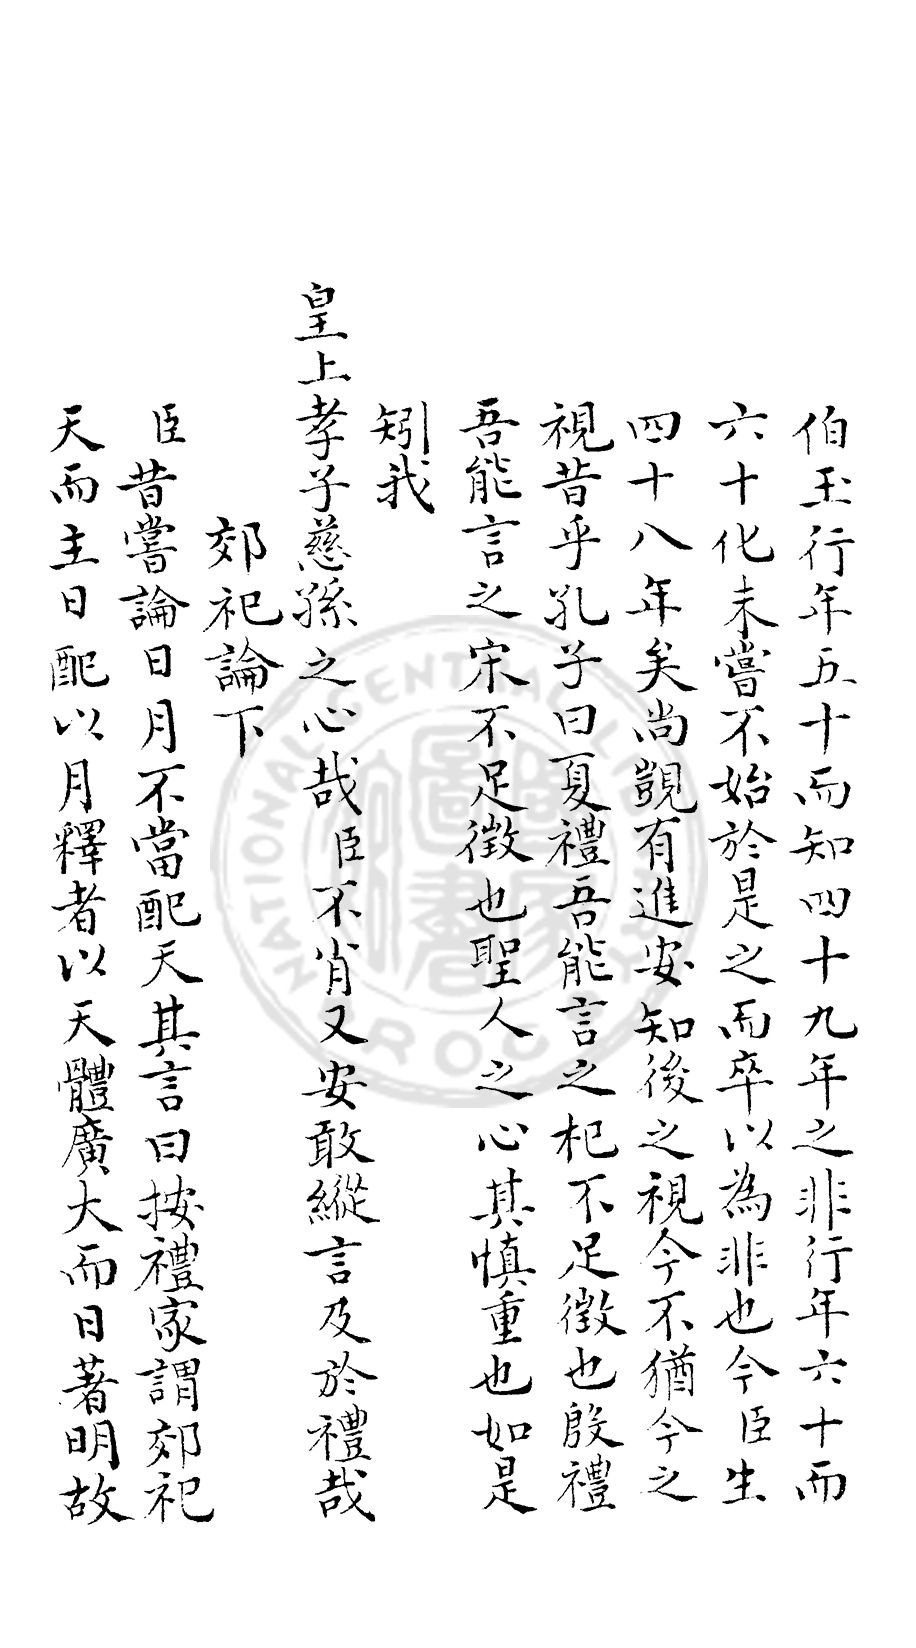 伯玉行年五十而知四十九年之非行年六十而
六十化未嘗不始於是之而卒以為非也今臣生
四十八年矣尚覬有進安知後之視今不猶今之
視昔乎孔子曰夏禮吾能言之杞不足徵也殷禮
吾能言之宋不足徵也聖人之心其慎重也如是
矧我
皇上孝子慈孫之心哉臣不肖又安敢縱言及於禮哉
郊祀論下
臣昔嘗論日月不當配天其言曰按禮家謂郊祀
天而主日配以月釋者以天體廣大而日著明故
NATIONAL CENTRAL LIBRARY
R.O.C.
國家圖書館